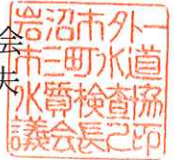 会
夫
岩沼市外一
市三町水道
水質検査協
議会長之印